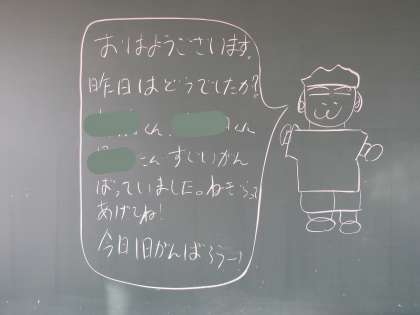 おはようございます。
昨日はどうでしたか?
くん、くん
さんすごいがん
ばっていました。ねぎらって
あげてね!
今日1日がんばろうー!